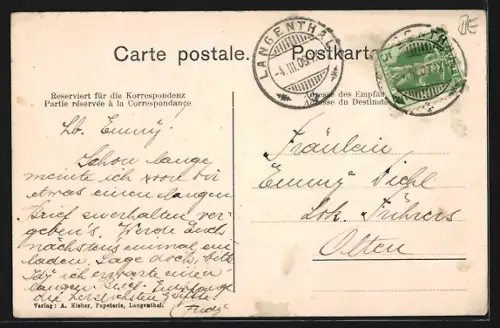 Carte postale. Postkarte
LANGENTHAL
-4.III.09.
Reserviert für die Korrespondenz
Partie réservée à la Correspondance
Adresse du Destinata
Lb. Emmy.
Schon lange
meinte ich von Dir
etwas einen langen
Brief zu erhalten ver-
geben's. Werde Euch
nächstens einmal ein
laden. Sage doch, bitte
ich erwarte einen
langen Brief. Empfange
die herzlichsten Grüsse
Fräulein
"Emmy" Diehl
Lok. Führers
Olten
Verlag: A. Kleber, Papeterie, Langenthal.